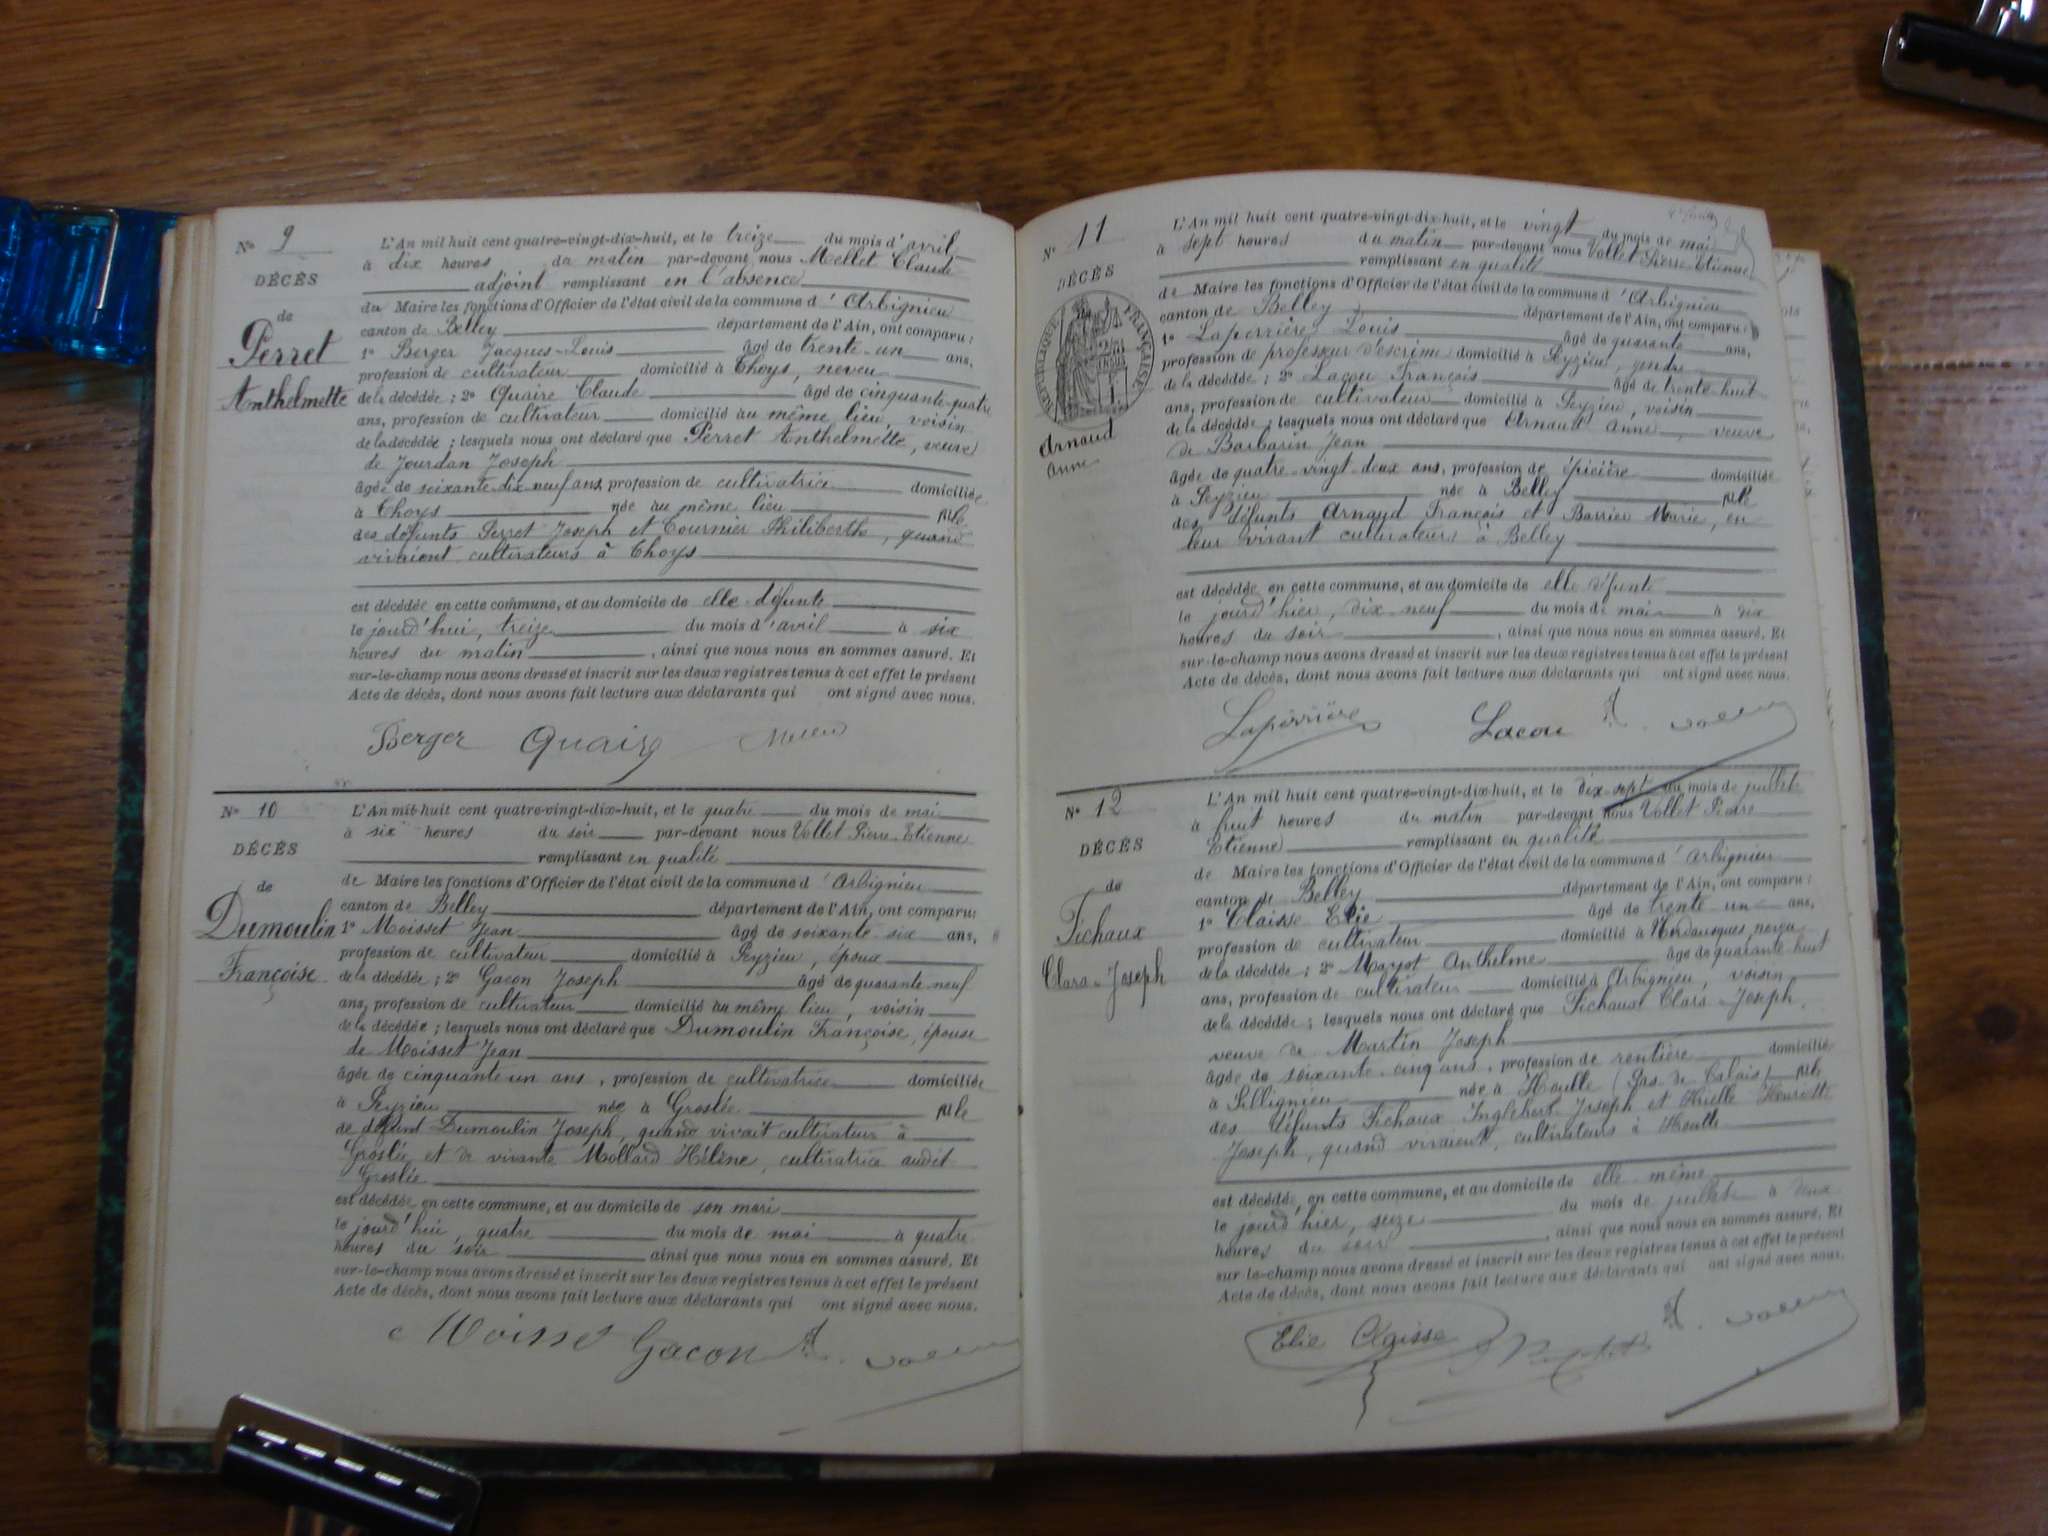 N° 9
DÉCÈS
de
Perret
Anthelmette
L'An mil huit cent quatre-vingt-dix-huit, et le treize du mois d'avril
à dix heures du matin par-devant nous Mellet Claude
adjoint remplissant en l'absence
du Maire les fonctions d'Officier de l'état civil de la commune d'Arbignieu
canton de Belley département de l'Ain, ont comparu:
1° Berger Jacques-Louis âgé de trente-un ans,
profession de cultivateur domicilié à Choys, neveu
de la décédée; 2° Quaire Claude âgé de cinquante-quatre
ans, profession de cultivateur domicilié au même lieu, voisin
de la décédée; lesquels nous ont déclaré que Perret Anthelmette, veuve
de Jourdan Joseph
âgée de soixante-dix-neuf ans, profession de cultivatrice domiciliée
à Choys née au même lieu fille
des défunts Perret Joseph et Tournier Philiberthe, quand
vivaient cultivateurs à Choys
est décédée en cette commune, et au domicile de elle défunte
le jourd'hui, treize du mois d'avril à six
heures du matin, ainsi que nous nous en sommes assuré. Et
sur-le-champ nous avons dressé et inscrit sur les deux registres tenus à cet effet le présent
Acte de décès, dont nous avons fait lecture aux déclarants qui ont signé avec nous.
Berger Quaire
N° 10
DÉCÈS
de
Dumoulin
Françoise
L'An mil huit cent quatre-vingt-dix-huit, et le quatre du mois de mai
à six heures du soir par-devant nous Vollet Pierre-Etienne
remplissant en qualité
de Maire les fonctions d'Officier de l'état civil de la commune d'Arbignieu
canton de Belley département de l'Ain, ont comparu:
1° Moisset Jean âgé de soixante-six ans,
profession de cultivateur domicilié à Peyzieu, époux
de la décédée; 2° Gacon Joseph âgé de quarante-neuf
ans, profession de cultivateur domicilié au même lieu, voisin
de la décédée; lesquels nous ont déclaré que Dumoulin Françoise, épouse
de Moisset Jean
âgée de cinquante un ans, profession de cultivatrice domiciliée
à Peyzieu née à Groslée fille
de défunt Dumoulin Joseph, quand vivait cultivateur à
Groslée et de vivante Mollard Hélène, cultivatrice audit
Groslée
est décédée en cette commune, et au domicile de son mari
le jourd'hui, quatre du mois de mai à quatre
heures du soir ainsi que nous nous en sommes assuré. Et
sur-le-champ nous avons dressé et inscrit sur les deux registres tenus à cet effet le présent
Acte de décès, dont nous avons fait lecture aux déclarants qui ont signé avec nous.
Moisset Gacon
N° 11
DÉCÈS
RÉPUBLIQUE FRANÇAISE
Arnaud
Anne
L'An mil huit cent quatre-vingt-dix-huit, et le vingt du mois de mai
à sept heures du matin par-devant nous Vollet Pierre-Etienne
remplissant en qualité
de Maire les fonctions d'Officier de l'état civil de la commune d'Arbignieu
canton de Belley département de l'Ain, ont comparu:
1° Laperrière Louis âgé de quarante ans,
profession de professeur d'escrime domicilié à Peyzieu, gendre
de la décédée; 2° Lacou François âgé de trente-huit
ans, profession de cultivateur domicilié à Peyzieu, voisin
de la décédée; lesquels nous ont déclaré que Arnaud Anne, veuve
de Barbarin Jean
âgée de quatre-vingt-deux ans, profession de épicière domiciliée
à Peyzieu née à Belley fille
des défunts Arnaud François et Barrier Marie, en
leur vivant cultivateurs à Belley
est décédée en cette commune, et au domicile de elle défunte
le jourd'hier, dix-neuf du mois de mai à dix
heures du soir, ainsi que nous nous en sommes assuré. Et
sur-le-champ nous avons dressé et inscrit sur les deux registres tenus à cet effet le présent
Acte de décès, dont nous avons fait lecture aux déclarants qui ont signé avec nous.
Laperrière Lacou
N° 12
DÉCÈS
de
Fichaux
Clara-Joseph
L'An mil huit cent quatre-vingt-dix-huit, et le dix-sept du mois de juillet
à huit heures du matin par-devant nous Vollet Pierre
Etienne remplissant en qualité
de Maire les fonctions d'Officier de l'état civil de la commune d'Arbignieu
canton de Belley département de l'Ain, ont comparu:
1° Claisse Elie âgé de trente-un ans,
profession de cultivateur domicilié à Nordausques, neveu
de la décédée; 2° Mayot Anthelme âgé de quarante huit
ans, profession de cultivateur domicilié à Arbignieu, voisin
de la décédée; lesquels nous ont déclaré que Fichaux Clara-Joseph,
veuve de Martin Joseph
âgée de soixante-cinq ans, profession de rentière domiciliée
à Sillignieu née à Houlle (Pas de Calais) fille
des défunts Fichaux Inglebert Joseph et Henriette
Joseph, quand vivaient, cultivateurs à Houlle
est décédée en cette commune, et au domicile de elle-même
le jourd'hier, seize du mois de juillet à deux
heures du soir, ainsi que nous nous en sommes assuré. Et
sur-le-champ nous avons dressé et inscrit sur les deux registres tenus à cet effet le présent
Acte de décès, dont nous avons fait lecture aux déclarants qui ont signé avec nous.
Elie Claisse